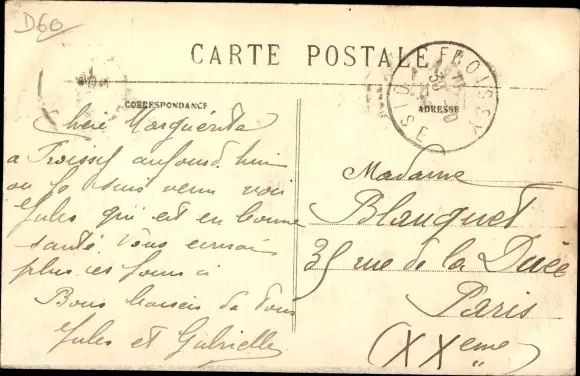 D60
CARTE POSTALE
FROISSY
OISE
CORRESPONDANCE
ADRESSE
Chère Marguerite
a Froissy aujourd hui
ou je suis venu voir
Jules qui est en bonne
santé. Vous
plus ces jours ci
Bons baisers de tous
Jules et Gabrielle
Madame
Blanquet
35 rue de la Duée
Paris
(XXeme